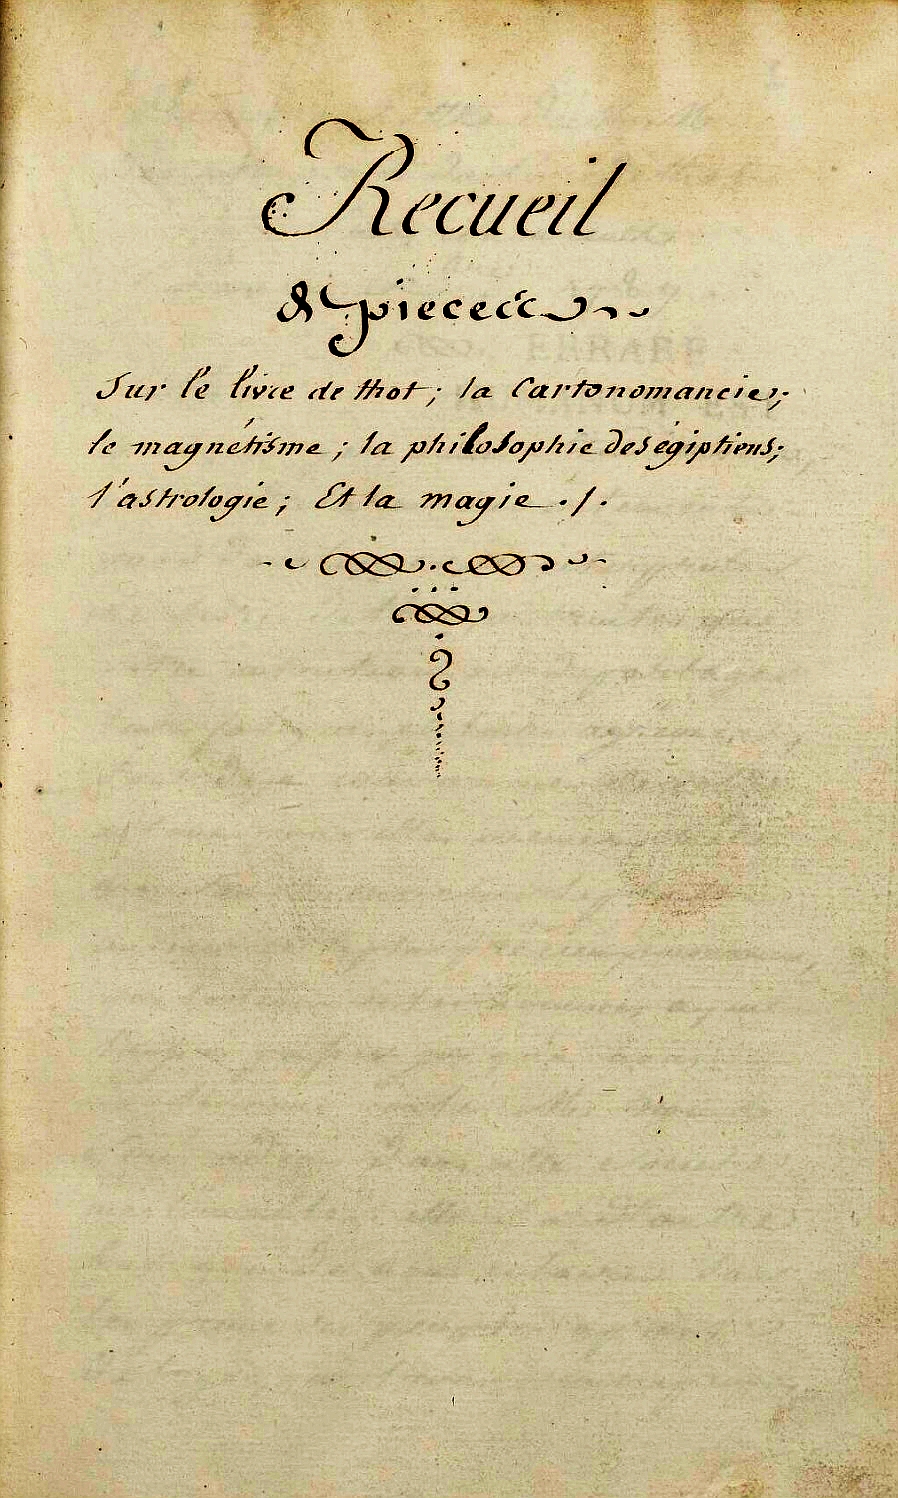 Recueil
de pieces
Sur le livre de thot; la Cartonomancie;
le magnétisme; la philosophie des égiptiens;
l'astrologie; Et la magie ./.